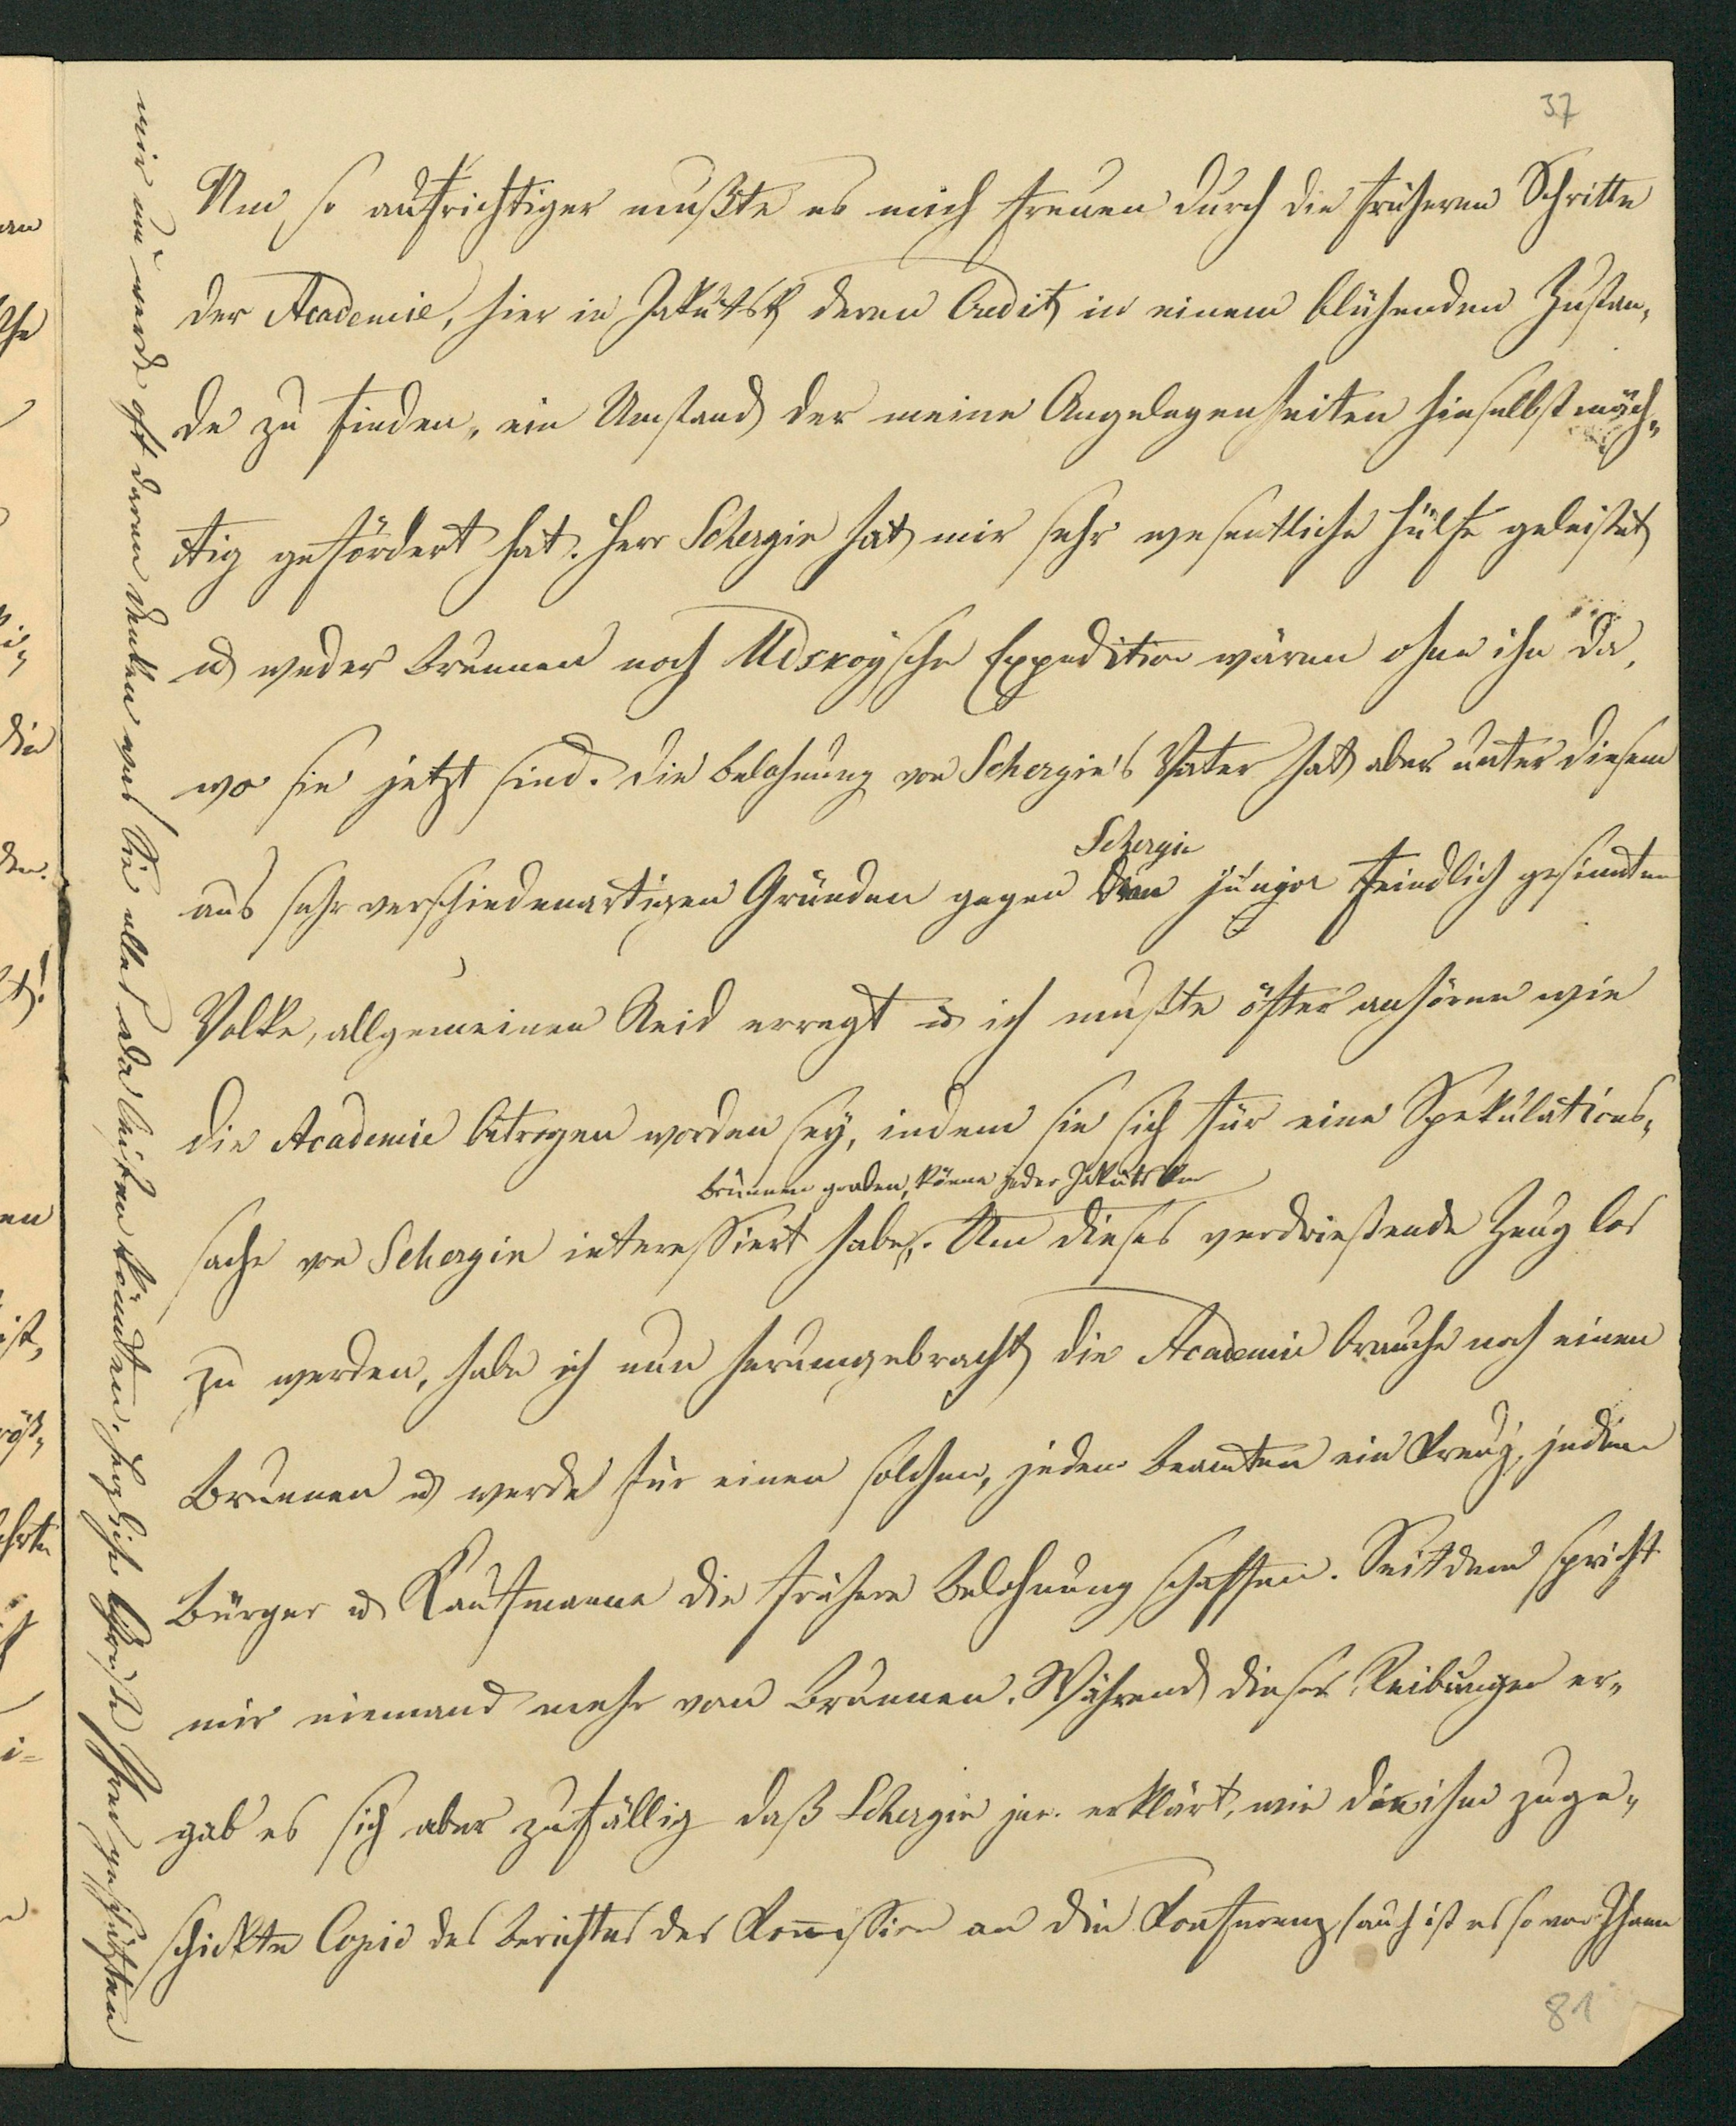 37
Um so aufrichtiger mußte es mich freuen durch die früheren Schritte
der Academie, hier in Jakutsk deren Credit in einem blühenden Zustan„
de zu finden, ein Umstand der meine Angelegenheiten hieselbst mäch„
tig gefördert hat. Herr Schergin hat mir sehr wesentliche Hülfe geleistet
u weder Brunnen noch Udskoysche Expedition wären ohne ihn da,
wo sie jetzt sind. Die Belohnung von Schergin's Vater hat aber unter diesem
Schergin
aus sehr verschiedenartigen Gründen gegen den junior feindlich gesinnten
Volke, allgemeinen Neid erregt u ich mußte öfter anhören wie
die Academie betrogen worden sey, indem sie sich für eine Spekulations„
Brunnen graben, könne jeder Jakutsker
sache von Schergin interessiert habe. Um dieses verdrießende Zeug los
zu werden, habe ich nun herumgebracht die Academie brauche noch einen
Brunnen u werde für einen solchen, jedem Beamten ein Kreuz, jedem
Bürger u Kaufmanne die frühere Belohnung schaffen. Seitdem spricht
mir niemand mehr von Brunnen. Während dieser Reibungen er„
gab es sich aber zufällig daß Schergin jun. erklärt, wie die ihm zuge„
schickte Copie des Berichtes der Komission an die Konferenz (auch ist es so von Ihnen
81
mir nun werde oft daran denken was Sie alles da leisten könnten. Herzliche Grüße Ihren geschätzten